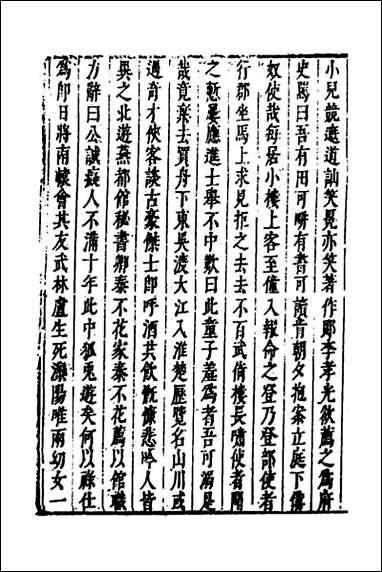 小兒競遮道訕笑冕亦笑著作郎李孝光欲薦之為府
史冕曰吾有田可耕有書可讀肯朝夕抱案立庭下備
奴使哉每居小樓上客至僮入報命之登乃登部使者
行郡坐馬上求見拒之去去不百武倚樓長嘯使者聞
之慙屢應進士舉不中歎曰此童子羞為者吾可溺是
哉竟棄去買舟下東吳渡大江入淮楚歷覽名山川或
遇奇才俠客談古豪傑士即呼酒共飲慷慨悲吟人皆
異之北遊燕都館秘書卿泰不花家泰不花薦以館職
力辭曰公誠癡人不滿十年此中狐兔遊矣何以祿仕
為即日將南轅會其友武林盧生死灤陽唯兩幼女一